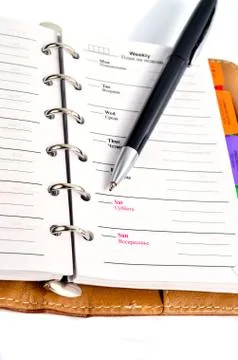 Weekly
План на неделю
Mon
Понедельник
Tue
Вторник
Wed
Среда
Thu
Sat
Суббота
Sun
Воскресенье